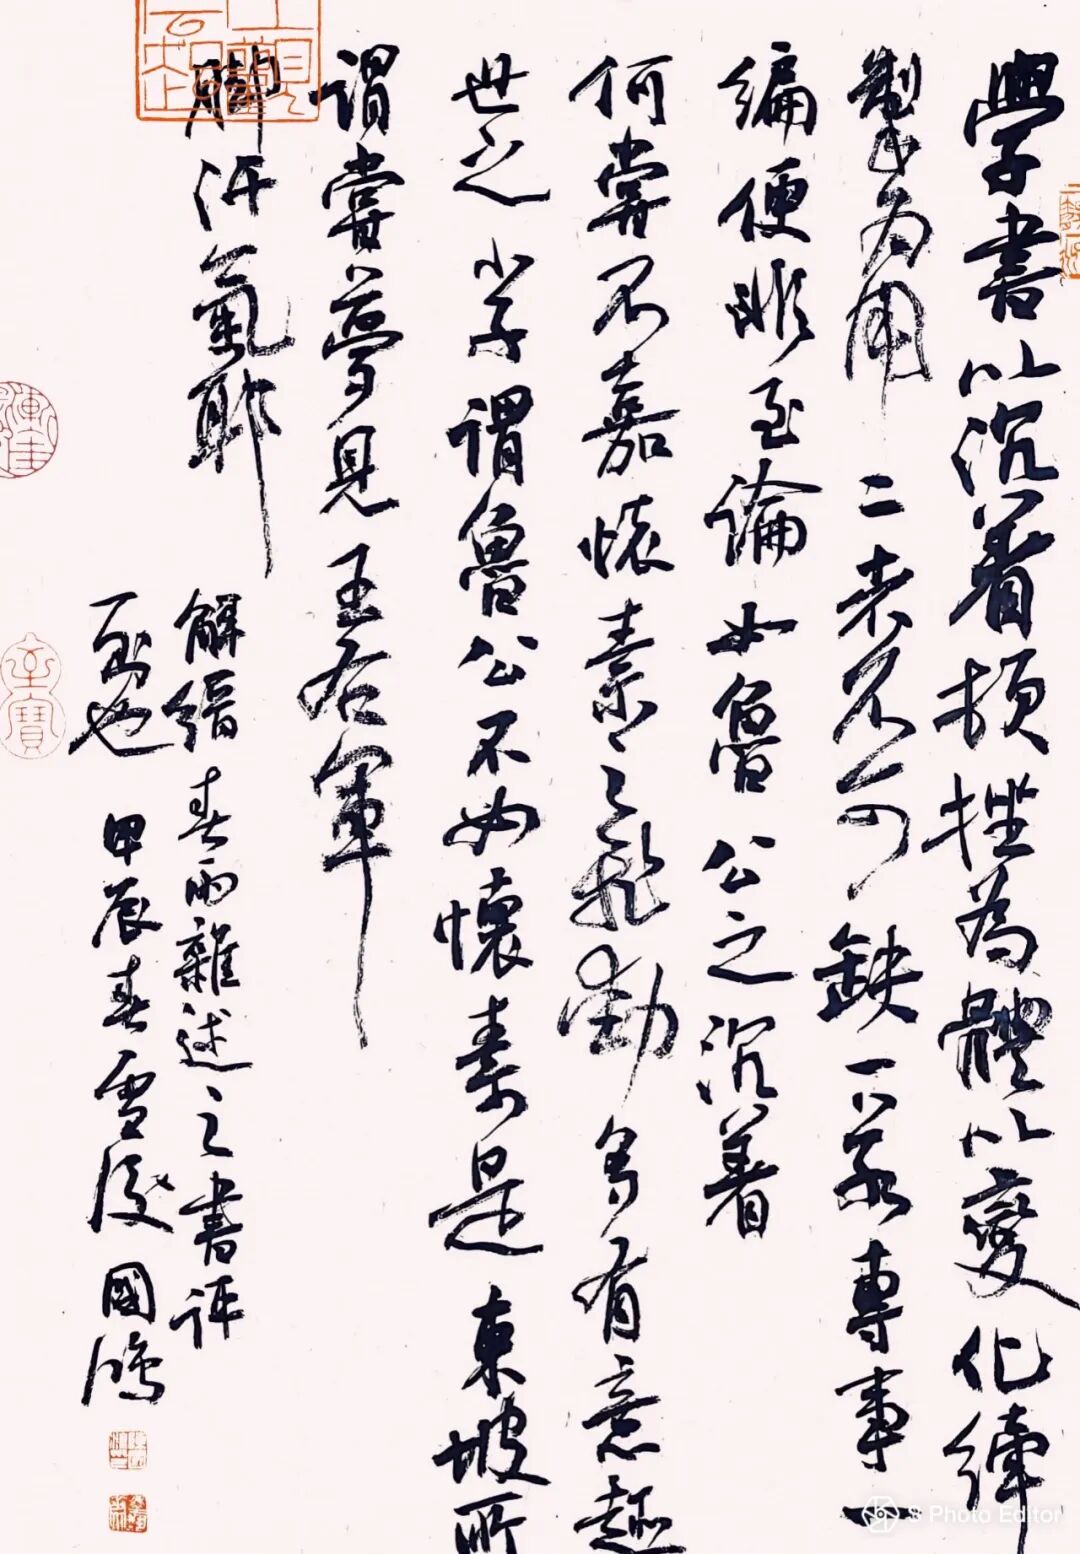 學書以沉着頓挫為體以變化牽
掣為用二者不可缺一若專事一
編便非至論如魯公之沉着
何嘗不嘉懷素之飛動多有意趣
世之小子謂魯公不如懷素是東坡所
謂嘗夢見王右軍
脚汗氣耶
解縉春雨雜述之書評
一則也 甲辰春雪後國鴻
S Photo Editor